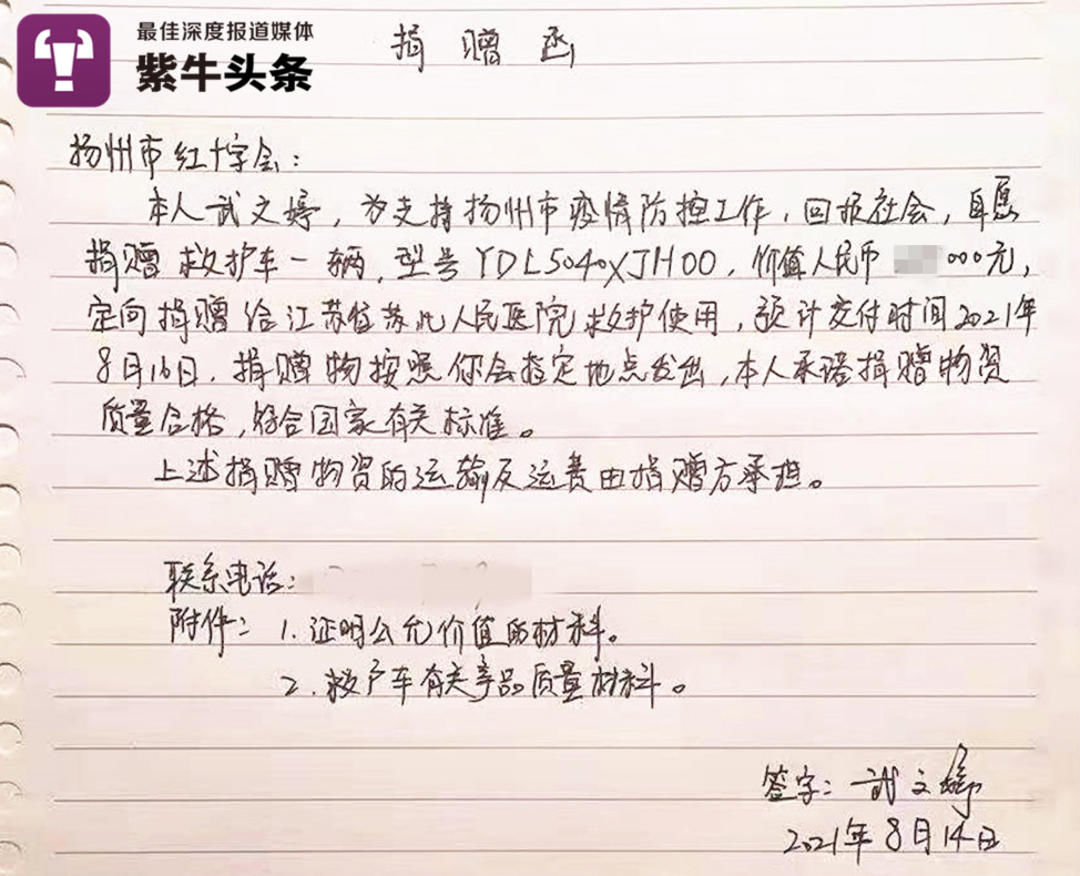 最佳深度报道媒体
紫牛头条
捐赠函
扬州市红十字会：
本人武文婷，为支持扬州市疫情防控工作，回报社会，自愿
捐赠救护车一辆，型号YDL5040XJH00，价值人民币000元，
定向捐赠给江苏省苏北人民医院救护使用，预计交付时间2021年
8月16日，捐赠物按照你会指定地点发出，本人承诺捐赠物资
质量合格，符合国家有关标准。
上述捐赠物资的运输及运费由捐赠方承担。
联系电话：
附件：1.证明公允价值的材料。
2.救户车有关产品质量材料。
签字：武文婷
2021年8月14日